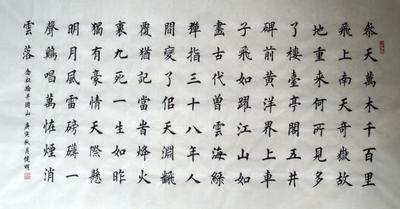 叅天萬木千百里
飛上南天奇嶽故
地重來何所見多
了樓臺亭閣五井
碑前黄洋界上車
子飛如躍江山如
畫古代曾雲海綠
彈指三十八年人
間變了佀天淵飜
覆猶記當旹烽火
裏九死一生如昨
獨有豪情天際懸
明月風雷磅礴一
聲鷄唱萬怪煙消
雲落
念奴嬌井岡山 庚寅秋月